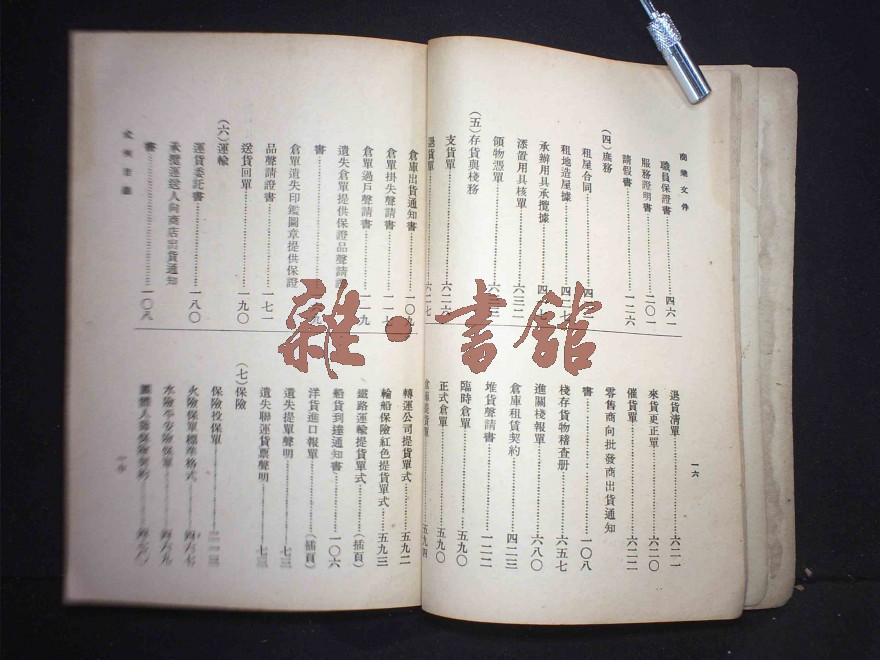 商業文件
職員保證書……四六一
服務證明書……二〇一
請假書……一二六
(四)庶務
租屋合同
租地造屋據……四二七
承辦用具承攬據……四七
添置用具核單……六三二
領物憑單
(五)存貨與棧務
支貨單……六二六
退貨單……六二七
退貨清單……六二一
來貨更正單……六二〇
催貨單……六二二
零售商向批發商出貨通知
書……一〇八
棧存貨物稽查册……六五七
進關棧報單……六八〇
倉庫租賃契約……四二三
堆貨聲請書……一二二
臨時倉單……五九〇
正式倉單……五九〇
一六
倉庫出貨通知書……一〇九
倉單掛失聲請書……一一七
倉單過戶聲請書……一一九
遺失倉單提供保證品聲請證
書
倉單遺失印鑑圖章提供保證
品聲請證書……一七一
送貨回單……一九〇
(六)運輸
運貨委託書……一八〇
承攬運送人向商店出貨通知
書……一〇八
轉運公司提貨單式……五九二
輪船保險紅色提貨單式……五九三
鐵路運輸提貨單式……(插頁)
船貨到達通知書……一〇六
洋貨進口報單……(插頁)
遺失提單聲明……七三
遺失聯運貨票聲明……七三
(七)保險
保險投保單……二一三
火險保單標準格式……四六七
水險平安險保單